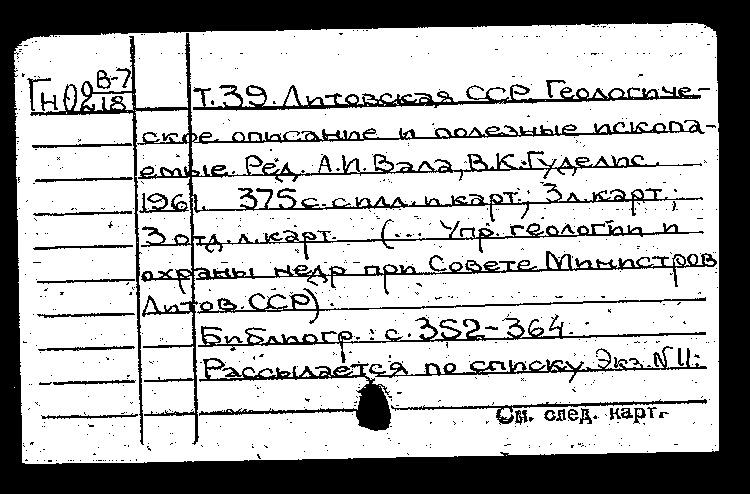 Гн02 В-7/18 Т.39. Литовская ССР Геологиче-
ское описание и полезные ископа-
емые. Ред. А.И. Вала, В.К. Гуделис.
1961. 375 с. с илл. и карт.; 3 л. карт.;
3 отд. л. карт. (... Упр. геологии и
охраны недр при Совете Министров
Литов. ССР).
Библиогр.: с. 352-364.
Рассылается по списку. Экз. N 11:
См. след. карт.